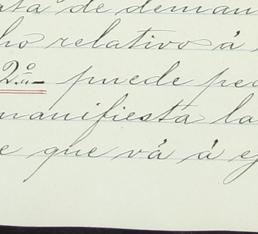 ata de deman
ho relativo á
2º.- puede ped
manifiesta la
e que vá á ej